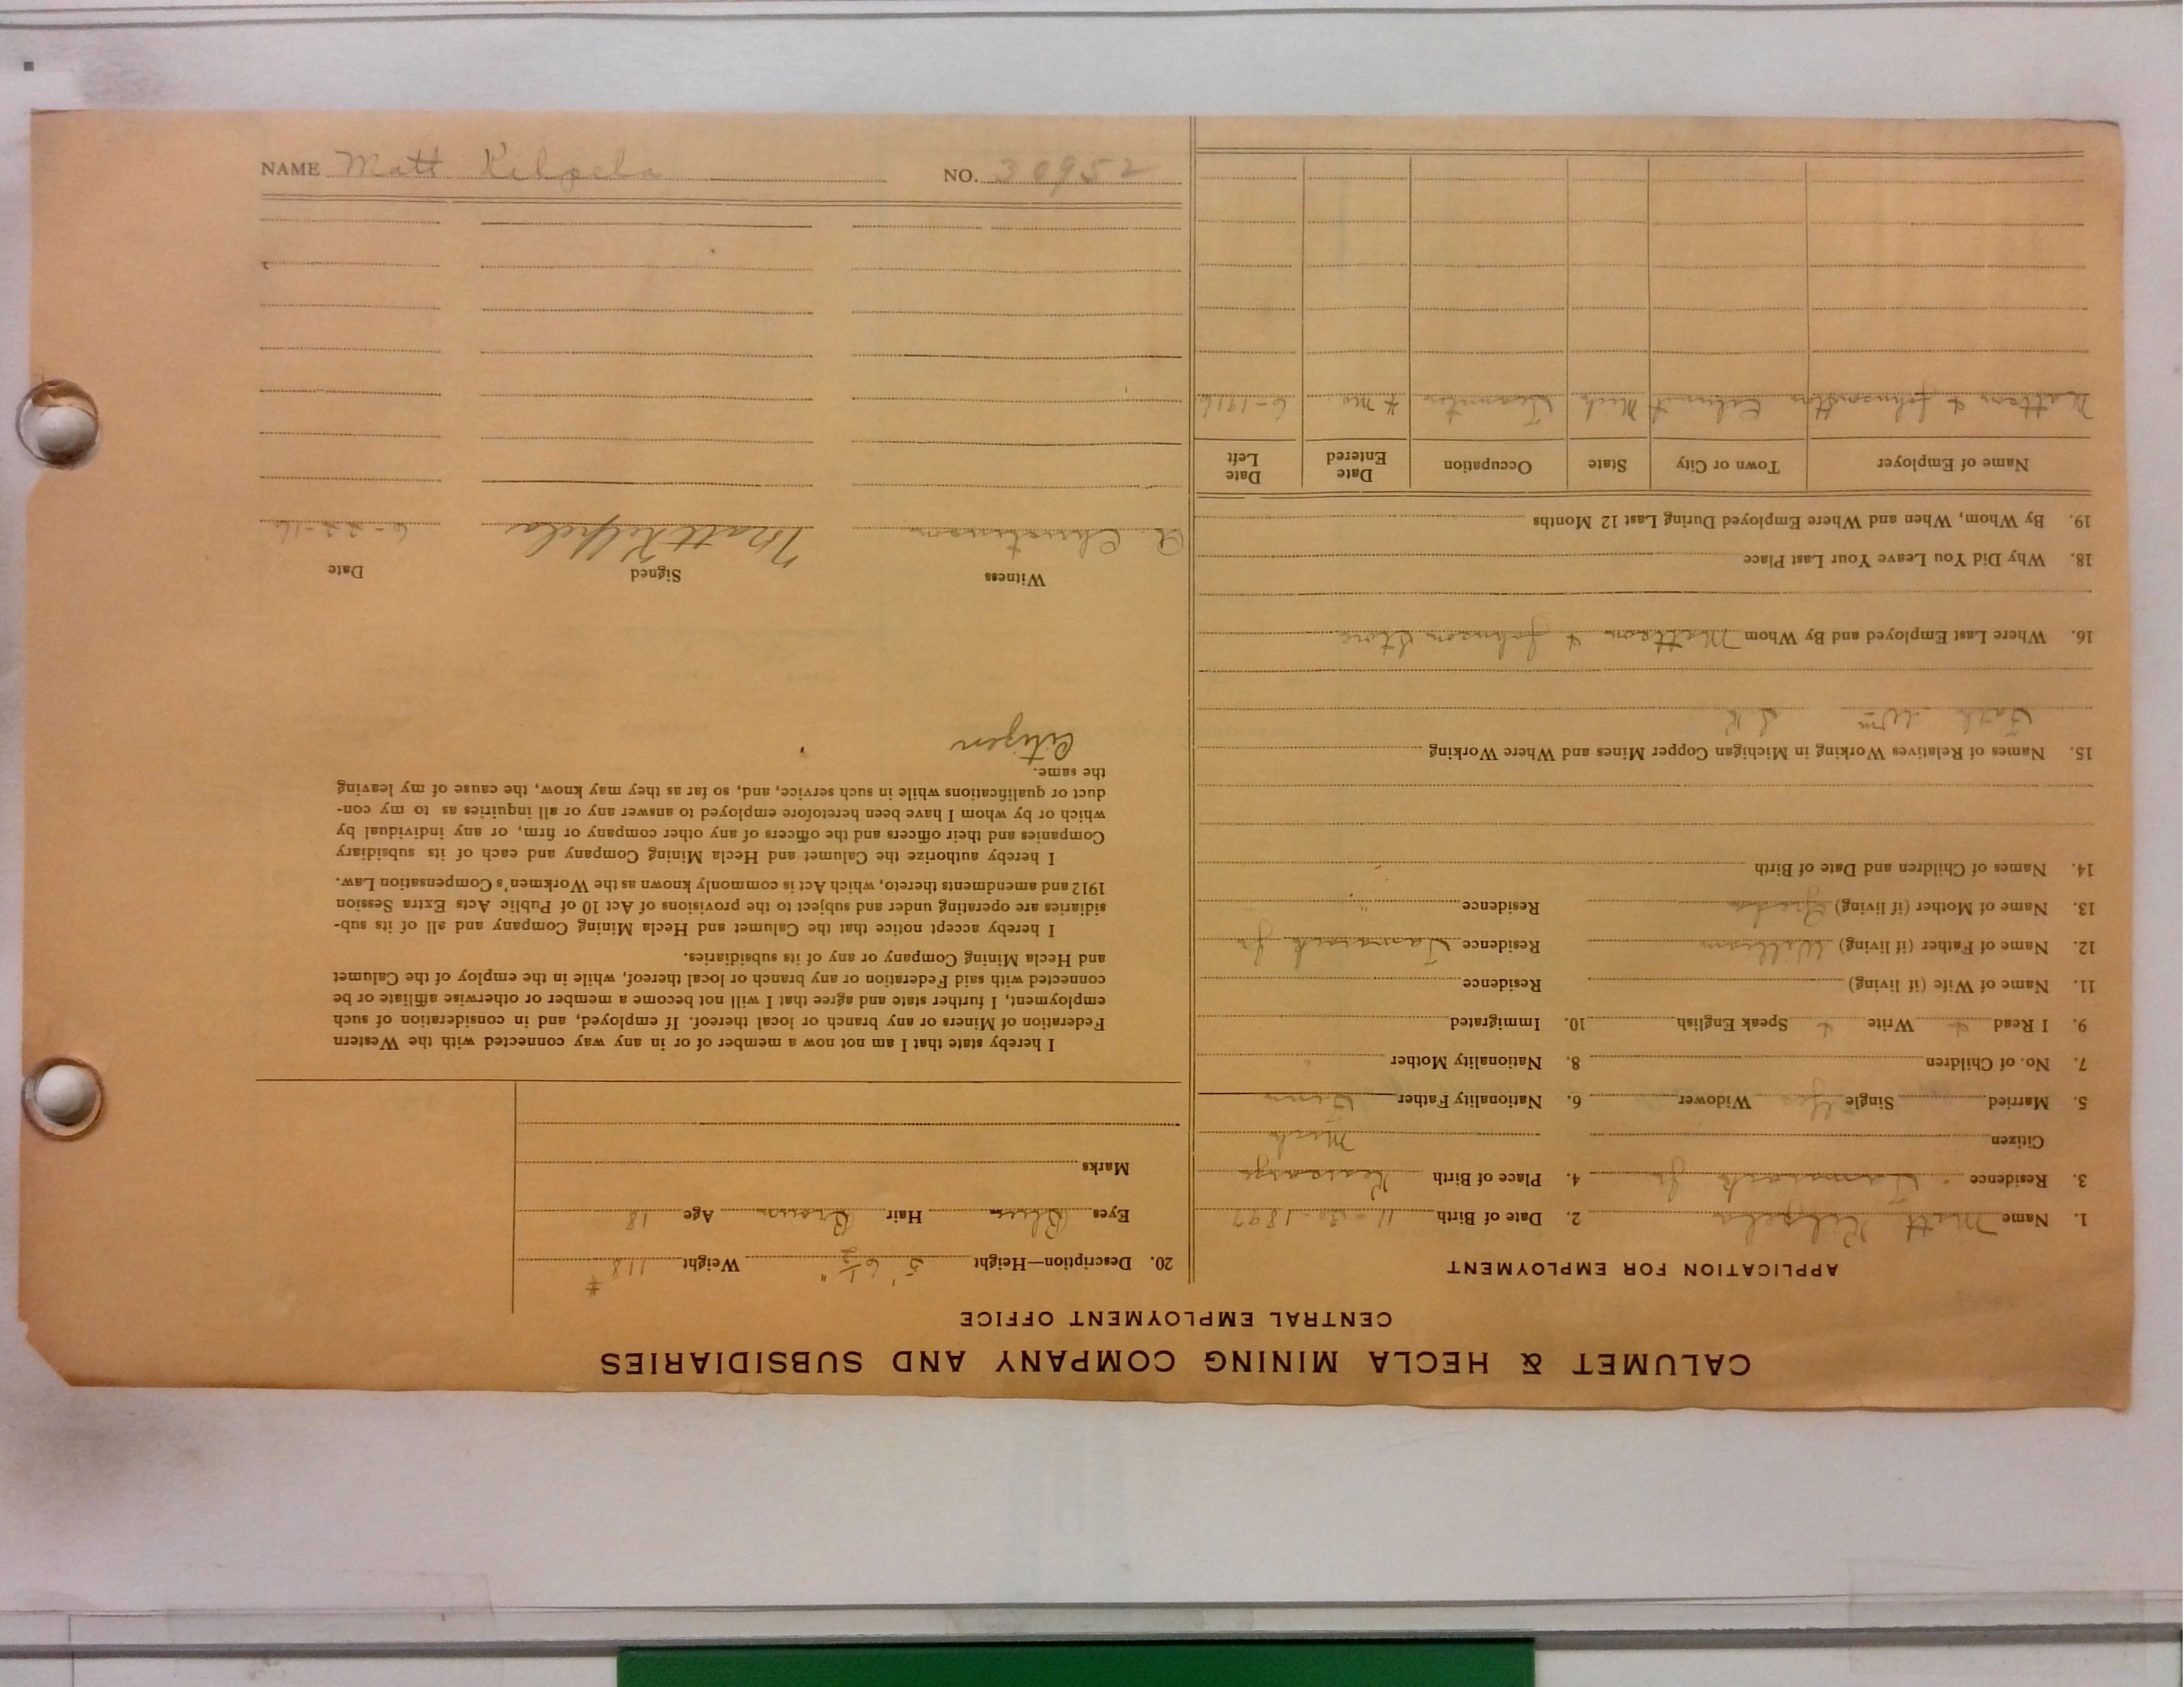 CALUMET & HECLA MINING COMPANY AND SUBSIDIARIES
CENTRAL EMPLOYMENT OFFICE
APPLICATION FOR EMPLOYMENT
1. Name Matt Kilpela 2. Date of Birth 11-30-1897
3. Residence Tamarack Jr 4. Place of Birth Kearsarge
Citizen Mich
5. Married Single Yes Widower 6. Nationality Father Finn
7. No. of Children 8. Nationality Mother
9. I Read Write Speak English 10. Immigrated
11. Name of Wife (if living) Residence
12. Name of Father (if living) William Residence Tamarack Jr
13. Name of Mother (if living) Residence "
14. Names of Children and Date of Birth
15. Names of Relatives Working in Michigan Copper Mines and Where Working
Fath Wm
16. Where Last Employed and By Whom Mattson & Johnson Store
18. Why Did You Leave Your Last Place
19. By Whom, When and Where Employed During Last 12 Months
Name of Employer Town or City State Occupation Date Entered Date Left
Mattson & Johnson Calumet Mich Teamster mo. 6-1916
20. Description—Height 5' 6½" Weight 118 #
Eyes Blue Hair Brown Age 18
Marks
I hereby state that I am not now a member of or in any way connected with the Western
Federation of Miners or any branch or local thereof. If employed, and in consideration of such
employment, I further state and agree that I will not become a member or otherwise affiliate or be
connected with said Federation or any branch or local thereof, while in the employ of the Calumet
and Hecla Mining Company or any of its subsidiaries.
I hereby accept notice that the Calumet and Hecla Mining Company and all of its sub-
sidiaries are operating under and subject to the provisions of Act 10 of Public Acts Extra Session
1912 and amendments thereto, which Act is commonly known as the Workmen's Compensation Law.
I hereby authorize the Calumet and Hecla Mining Company and each of its subsidiary
Companies and their officers and the officers of any other company or firm, or any individual by
which or by whom I have been heretofore employed to answer any or all inquiries as to my con-
duct or qualifications while in such service, and, so far as they may know, the cause of my leaving
the same.
Citizen
Witness Signed Date
A. Christensen Matt Kilpela 6-22-16
NAME Matt Kilpela NO. 30952